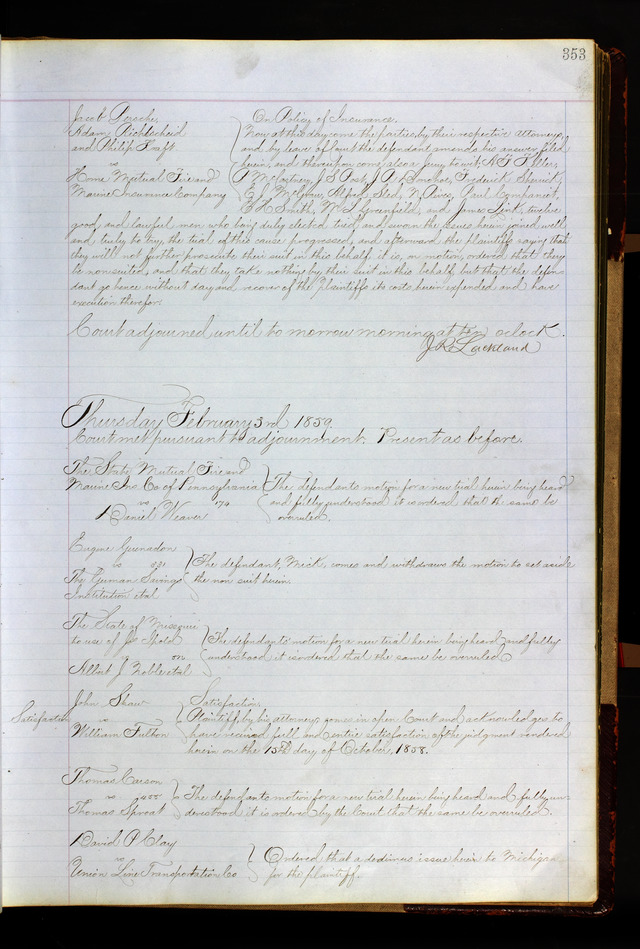 353
Jacob
Adam
and Philip Kraft
vs
Home Mutual Fire and
Marine Insurance Company
On Policy of Insurance.
Now at this day come the parties, by their respective attorneys,
and by leave of Court the defendant amends his answer filed
herein, and thereupon come also a jury to wit,
P. McCartney, J. S. Post, Frederick
Paul
H. Smith, Wm Greenfield, and James twelve
good and lawful men who being duly elected, tried and sworn the issues herein joined well
and truly to try, the trial of this cause progressed, and afterward the plaintiffs saying that
they will not further prosecute their suit in this behalf, it is, on motion, ordered that they
be nonsuited, and that they take nothing by their suit in this behalf but that the defen-
dant go hence without day and recover of the plaintiffs its costs herein expended and have
execution therefor.
Court adjourned until to morrow morning at ten oclock.
J. R. Lackland
Thursday February 3rd 1859.
Court met pursuant to adjournment. Present as before.
The State Mutual Fire and
Marine Ins Co of Pennsylvania
vs 174
Daniel Weaver
The defendants motion for a new trial herein being heard
and fully understood it is ordered that the same be
overruled.
Eugene
vs
The German Savings
Institution et al
The defendant, comes and withdraws the motion to set aside
the non suit herein.
The State of Missouri
to use of
vs
Albert J. Noble et al
The defendants motion for a new trial herein being heard and fully
understood it is ordered that the same be overruled.
Satisfaction
John Shaw
vs
William Fulton
Satisfaction.
Plaintiff by his attorney comes in open Court and acknowledges to
have received full and entire satisfaction of the judgment rendered
herein on the 15th day of October, 1858.
Thomas Carson
vs
Thomas Sproat
The defendants motion for a new trial herein being heard and fully un-
derstood, it is ordered by the Court that the same be overruled.
David P. Clay
vs
Union Line Transportation Co
Ordered that a dedimus issue herein to Michigan
for the plaintiff.